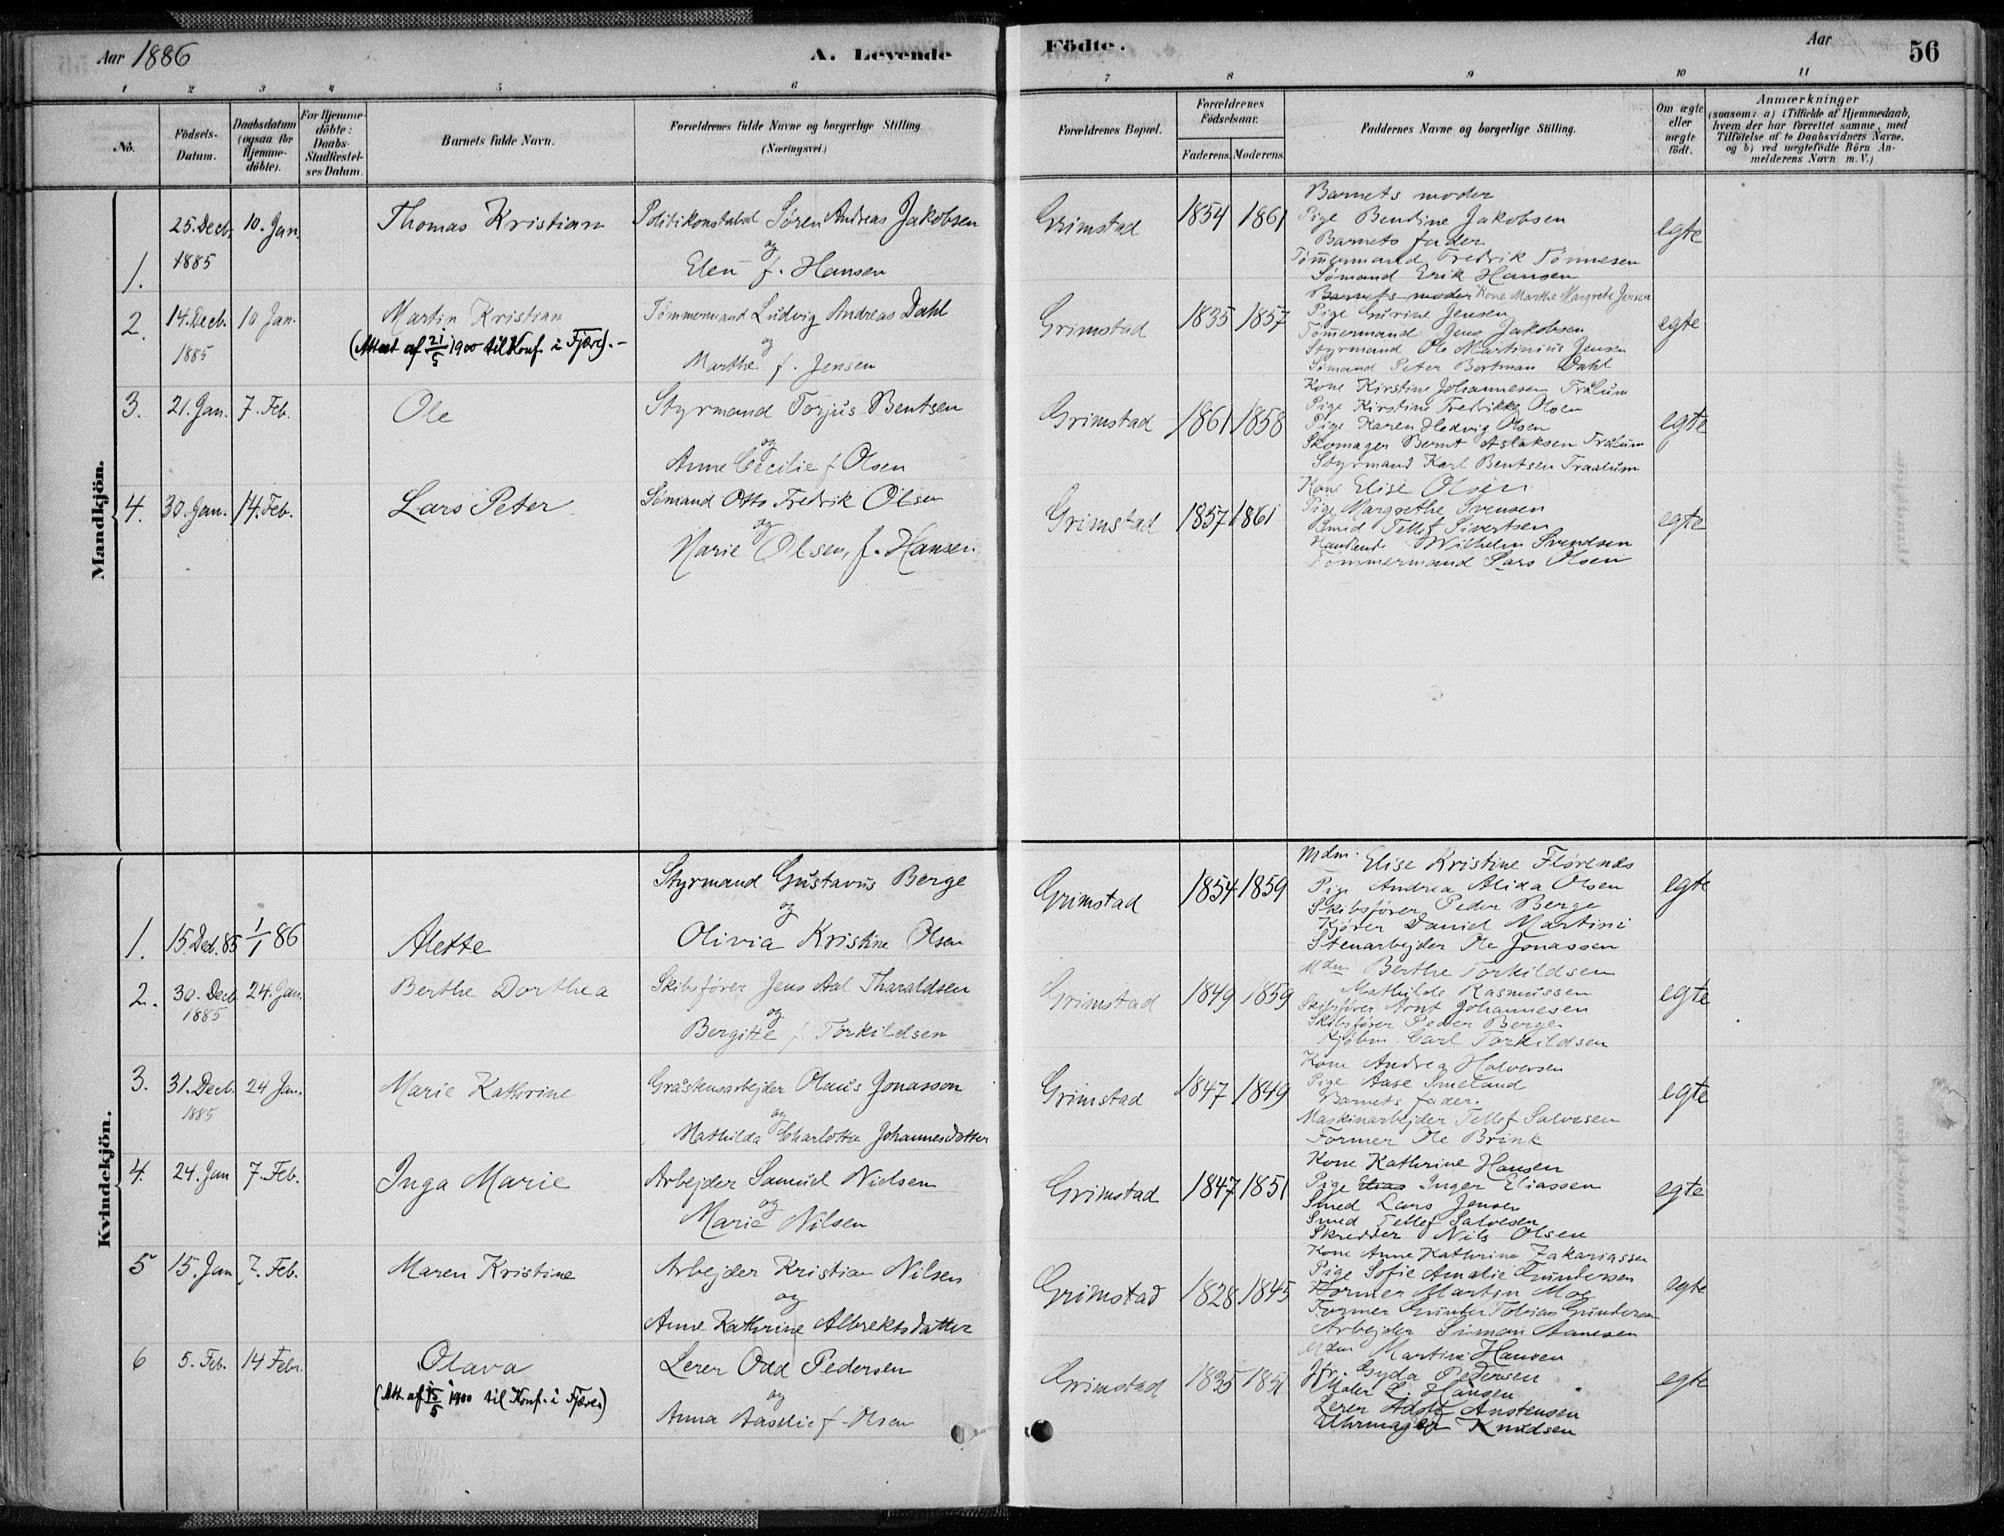 Aar 1886
A. Levende
Födte.
Aar
56
1 2 3 4 5 6 7 8 9 10 11
No.
Födsels-Datum.
Daabsdatum (ogsaa for Hjemme-döbte).
For Hjemme-döbte: Daabs-Stadfæstel-ses Datum.
Barnets fulde Navn.
Forældrenes fulde Navne og borgerlige Stilling. (Næringsvei.)
Forældrenes Bopæl.
Forældrenes Födselsaar.
Faderens. Moderens.
Faddernes Navne og borgerlige Stilling.
Om ægte eller uægte födt.
Anmærkninger
(saasom: a) i Tilfælde af Hjemmedaab, hvem der har forrettet samme, med Tilföielse af to Daabsvidners Navne. og b) ved uægtefödte Börn An-melderens Navn m. V.)
Mandkjön.
1. 25. Decb. 1885 10. Jan. Thomas Kristian
Politikonstabel Søren Andreas Jakobsen
og
Elen f. Hansen
Grimstad 1854 1861
Barnets moder
Pige Bendine Jakobsen
Barnets fader
Tømmermand Fredrik Tønnesen
Sømand Erik Hansen
egte
2. 14. Decb. 1885 10 Jan. Martin Kristian
(Attest af 21/5 1900 til Konf. i Fjære). -
Tømmermand Ludvig Andreas Dahl
og
Marthe f. Jensen
Grimstad 1835 1857
Barnets moder Kone Marthe Margrete Jensen
Pige Gurine Jensen
Tømmermand Jens Jakobsen
Styrmand Ole Martinius Jensen
Sømand Peter Bortman Dahl
egte
3. 21. Jan. 7. Feb. Ole
Styrmand Torjus Bentsen
og
Anne Cecilie f Olsen
Grimstad 1861 1858
Kone Kirstine Johannesen Trålum
Pige Kirstine Fredrikke Olsen
Pige Karen Hedvig Olsen
Skomager Bernt Aslaksen Trålum
Styrmand Karl Bentsen Traalum
egte
4. 30. Jan. 14. Feb. Lars Peter
Sømand Otto Fredrik Olsen
og
Marie Olsen, f. Hansen
Grimstad 1857 1861
Kone Elise Olsen
Pige Margrethe Svensen
Smed Tellef Sivertsen
Wilhelm Svendsen
Tømmermand Lars Olsen
egte
Kvindekjön.
1. 15. Dec. 85 1/1 86 Alette
Styrmand Gustavus Berge
og
Olivia Kristine Olsen
Grimstad 1854 1859
Mdm. Elise Kristine Florends
Pige Andrea Alida Olsen
Skibsfører Peder Berge
Kjører Daniel Martini
Stenarbejder Ole Jonassen
egte
2. 30. Decb 1885 24. Jan. Berthe Dorthea
Skibsfører Jens Aal Tharaldsen
og
Bergitte f. Torkildsen
Grimstad 1849 1859
Mdm Berthe Torkildsen
Mathilde Rasmussen
Skibsfører Arnt Johannesen
Skibsfører Peder Berge
Kjøbm. Carl Torkildsen
egte
3. 31. Decb. 1885 24 Jan. Marie Kathrine
Gråstensarbejder Olaus Jonasson
og
Mathilda Charlotta Johannesdotter
Grimstad 1847 1849
Kone Andrea Halvorsen
Pige Aase Smeland
Barnets fader.
Maskinarbejder Tellef Salvesen
Former Ole Brink
egte
4. 24. Jan 7. Feb. Inga Marie
Arbejder Samuel Nielsen
og
Marie Nilsen
Grimstad 1847 1851
Kone Kathrine Hansen
Pige Elias Inger Eliassen
Smed Lars Jensen
Smed Tellef Salvesen
Skredder Nils Olsen
egte
5 15. Jan 7. Feb. Maren Kristine
Arbejder Kristian Nilsen
og
Anne Kathrine Albrektsdatter
Grimstad 1828 1845
Kone Anne Kathrine Zakariassen
Pige Sofie Amalie Gundersen
Former Martin Moe
Former Gunder Tobias Gundersen
Arbejder Simon Aanesen
egte
6 5. Feb. 14 Febr. Olava
(Att. af 15/5 1900 til Konf. i Fjære)
Lerer Odd Pedersen
og
Anna Aaselie f. Olsen
Grimstad 1835 1851
Mdm Martine Hansen
Gyda Pedersen
Maler L. Hansen
Lerer Adolf Anstensen
Uhrmager Knudsen
egte